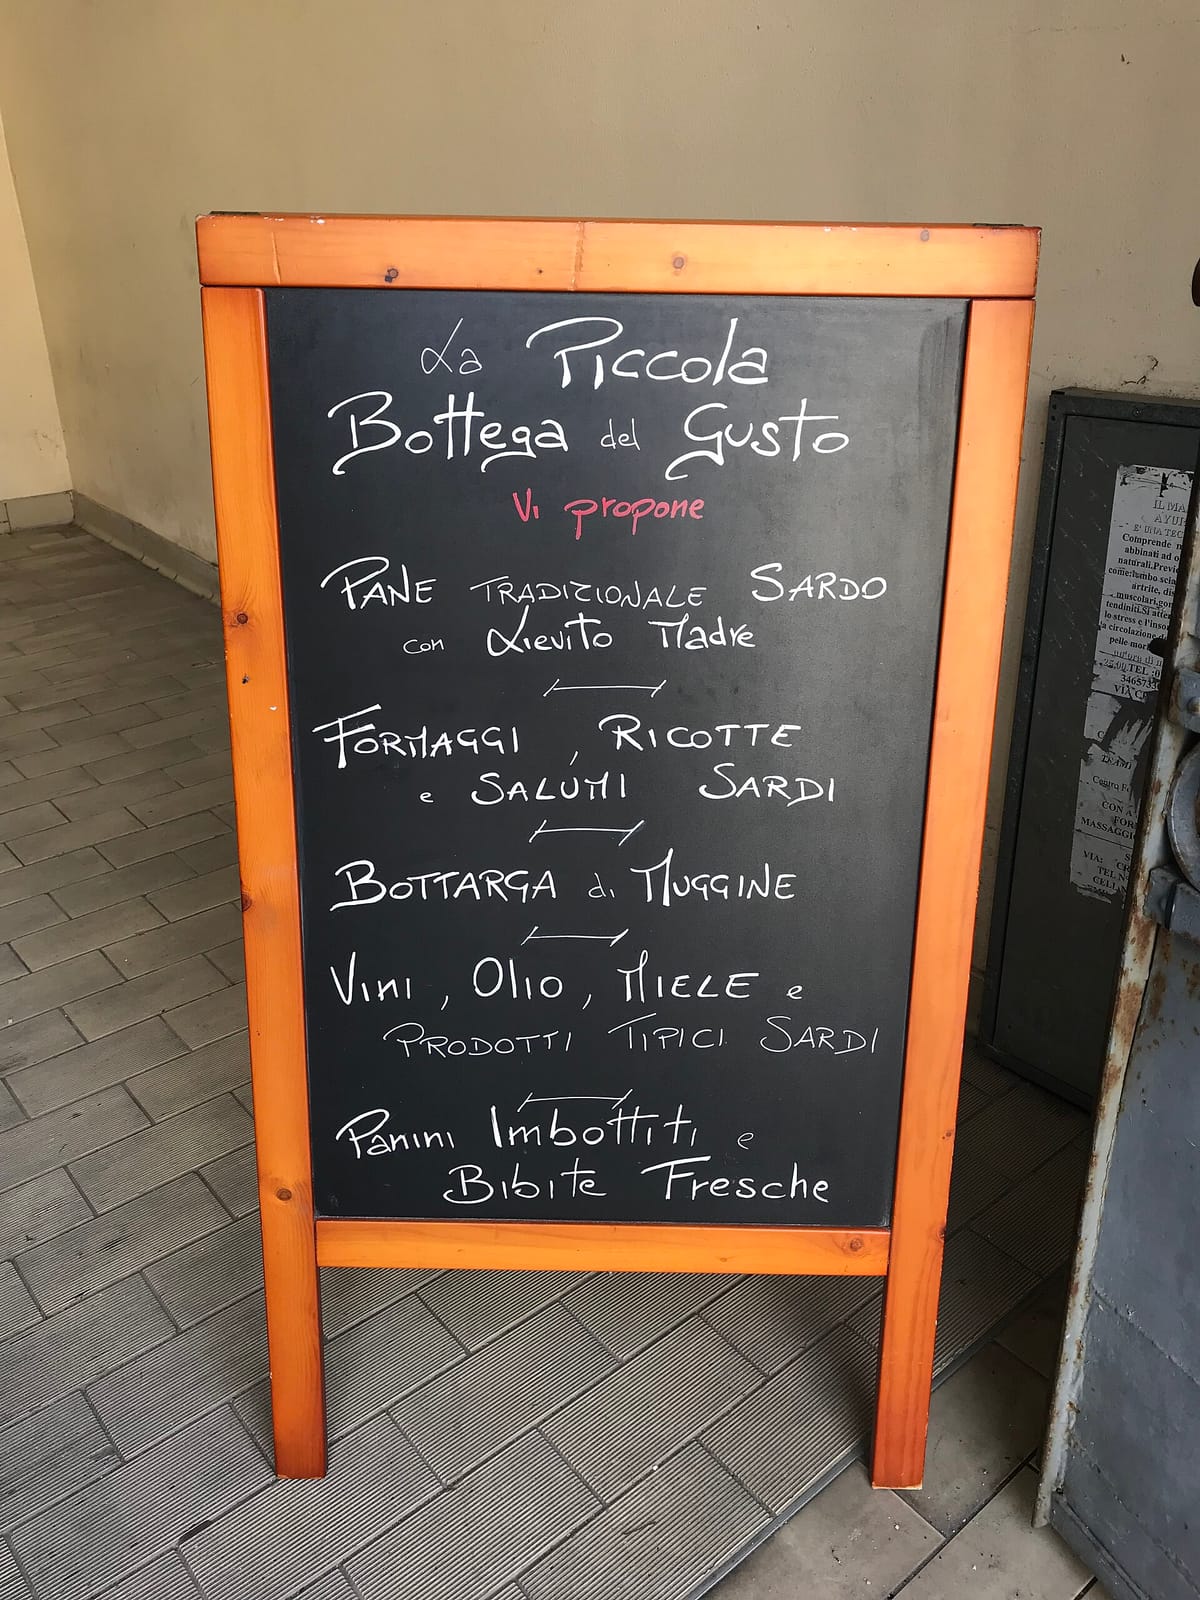 La Piccola
Bottega del Gusto
Vi propone
PANE TRADIZIONALE SARDO
con Lievito Madre
FORMAGGI, RICOTTE
e SALUMI SARDI
BOTTARGA di MUGGINE
Vini, Olio, MIELE e
PRODOTTI TIPICI SARDI
Panini Imbottiti e
Bibite Fresche
IL MA
AYUR
E' UNA TEC
Comprende
abbinati ad o
naturali.Previ
come:lombo scia
artrite, dis
muscolari,
tendiniti.Si
lo stress e l'inso
circolazione
pelle
TEL
VIA
CON A
FOR
MASSAGGI
VIA:
TEL N
CELL